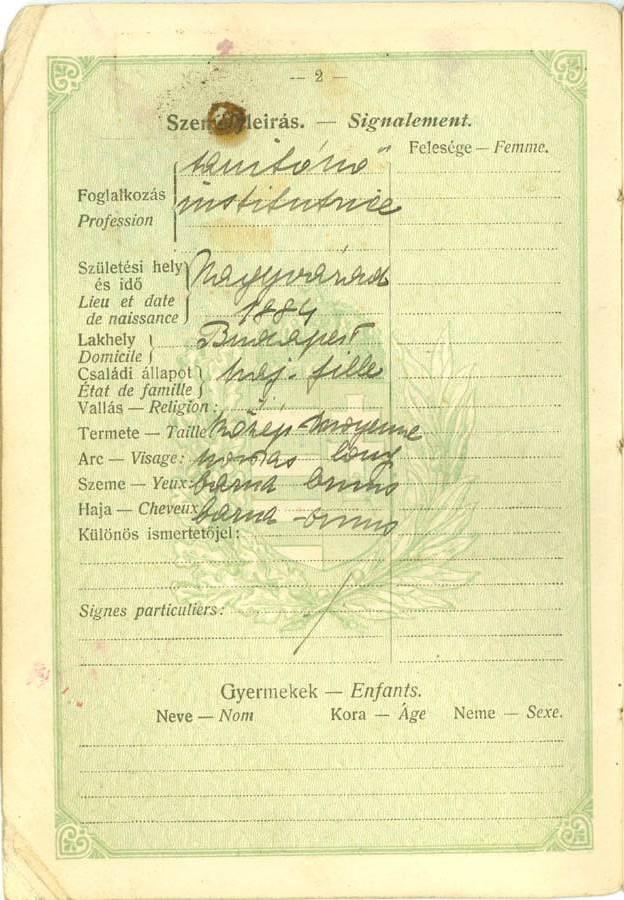 — 2 —
Személyleirás. — Signalement.
Felesége — Femme.
Foglalkozás
Profession
tanitónő
institutrice
Születési hely
és idő
Lieu et date
de naissance
Nagyvárad
1884
Lakhely
Domicile
Budapest
Családi állapot
État de famille
haj. fille
Vallás — Religion:
Termete — Taille közép moyenne
Arc — Visage: hosszas long
Szeme — Yeux: barna bruns
Haja — Cheveux barna - bruns
Különös ismertetőjel:
Signes particuliers:
Gyermekek — Enfants.
Neve — Nom Kora — Âge Neme — Sexe.